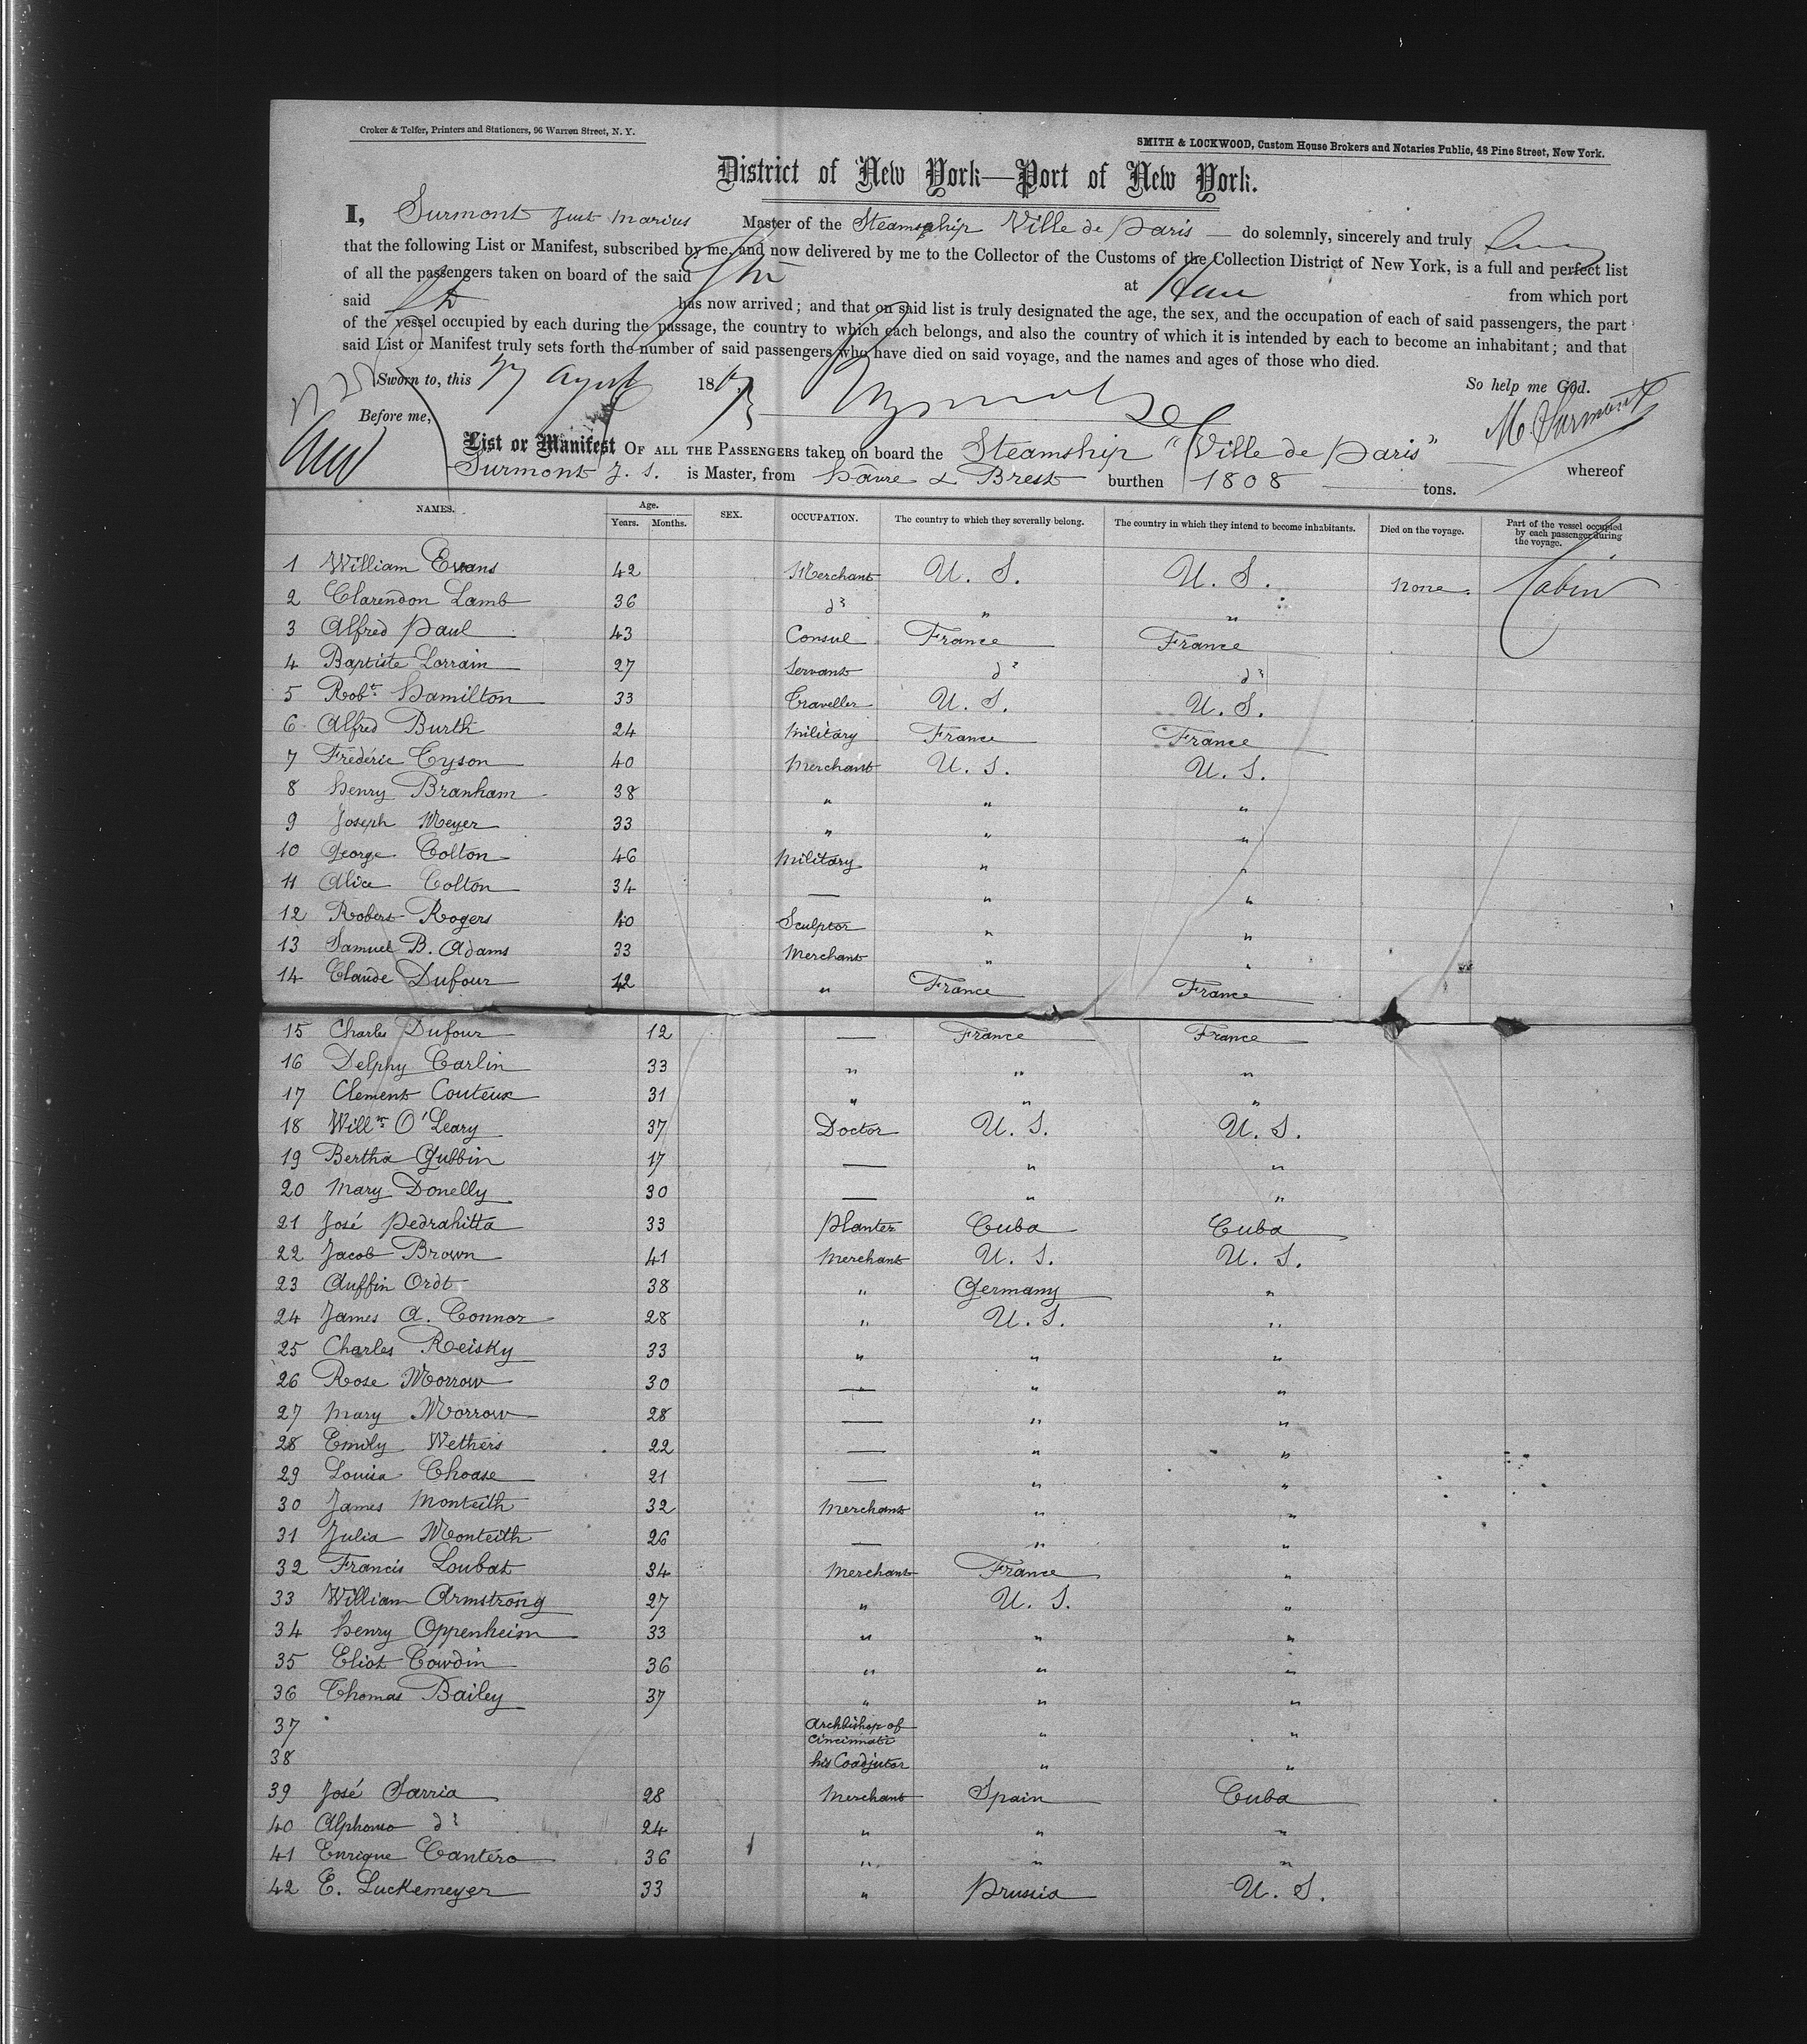 Croker & Telfer, Printers and Stationers, 96 Warren Street, N. Y.
SMITH & LOCKWOOD, Custom House Brokers and Notaries Public, 48 Pine Street, New York.
District of New York—Port of New York.
I, Surmont Just Marius Master of the Steamship Ville de Paris — do solemnly, sincerely and truly
that the following List or Manifest, subscribed by me, and now delivered by me to the Collector of the Customs of the Collection District of New York, is a full and perfect list
of all the passengers taken on board of the said Str at Havre from which port
said Str has now arrived; and that on said list is truly designated the age, the sex, and the occupation of each of said passengers, the part
of the vessel occupied by each during the passage, the country to which each belongs, and also the country of which it is intended by each to become an inhabitant; and that
said List or Manifest truly sets forth the number of said passengers who have died on said voyage, and the names and ages of those who died.
Sworn to, this 27 August 1867 So help me God.
Before me, M. Surmont
List or Manifest OF ALL THE PASSENGERS taken on board the Steamship "Ville de Paris" whereof
Surmont J. S. is Master, from Hâvre & Brest burthen 1808 tons.
NAMES. Age. Years. Months. SEX. OCCUPATION. The country to which they severally belong. The country in which they intend to become inhabitants. Died on the voyage. Part of the vessel occupied by each passenger during the voyage.
1 William Evans 42 Merchant U. S. U. S. None. Cabin
2 Clarendon Lamb 36 do " "
3 Alfred Paul 43 Consul France France
4 Baptiste Lorrain 27 Servant do do
5 Robt. Hamilton 33 Traveller U. S. U. S.
6 Alfred Burth 24 Military France France
7 Fréderic Tyson 40 Merchant U. S. U. S.
8 Henry Branham 38 " " "
9 Joseph Meyer 33 " " "
10 George Colton 46 Military " "
11 Alice Colton 34 — " "
12 Robert Rogers 40 Sculptor " "
13 Samuel B. Adams 33 Merchant " "
14 Claude Dufour 42 " France France
15 Charles Dufour 12 — France France
16 Delphy Carlin 33 " " "
17 Clement Couteux 31 " " "
18 Willm. O'Leary 37 Doctor U. S. U. S.
19 Bertha Gubbin 17 — " "
20 Mary Donelly 30 — " "
21 José Pedrahitta 33 Planter Cuba Cuba
22 Jacob Brown 41 Merchant U. S. U. S.
23 Auffin Ordt 38 " Germany "
24 James A. Connor 28 " U. S. "
25 Charles Reisky 33 " " "
26 Rose Morrow 30 — " "
27 Mary Morrow 28 — " "
28 Emily Wethers 22 — " "
29 Louisa Choase 21 — " "
30 James Monteith 32 Merchant " "
31 Julia Monteith 26 — " "
32 Francis Loubat 34 Merchant France "
33 William Armstrong 27 " U. S. "
34 Henry Oppenheim 33 " " "
35 Eliot Cowdin 36 " " "
36 Thomas Bailey 37 " " "
37 Archbishop of Cincinnati " "
38 his Coadjutor " "
39 José Sarria 28 Merchant Spain Cuba
40 Alphonso do 24 " " "
41 Enrique Cantéro 36 " " "
42 E. Luckemeyer 33 " Prussia U. S.